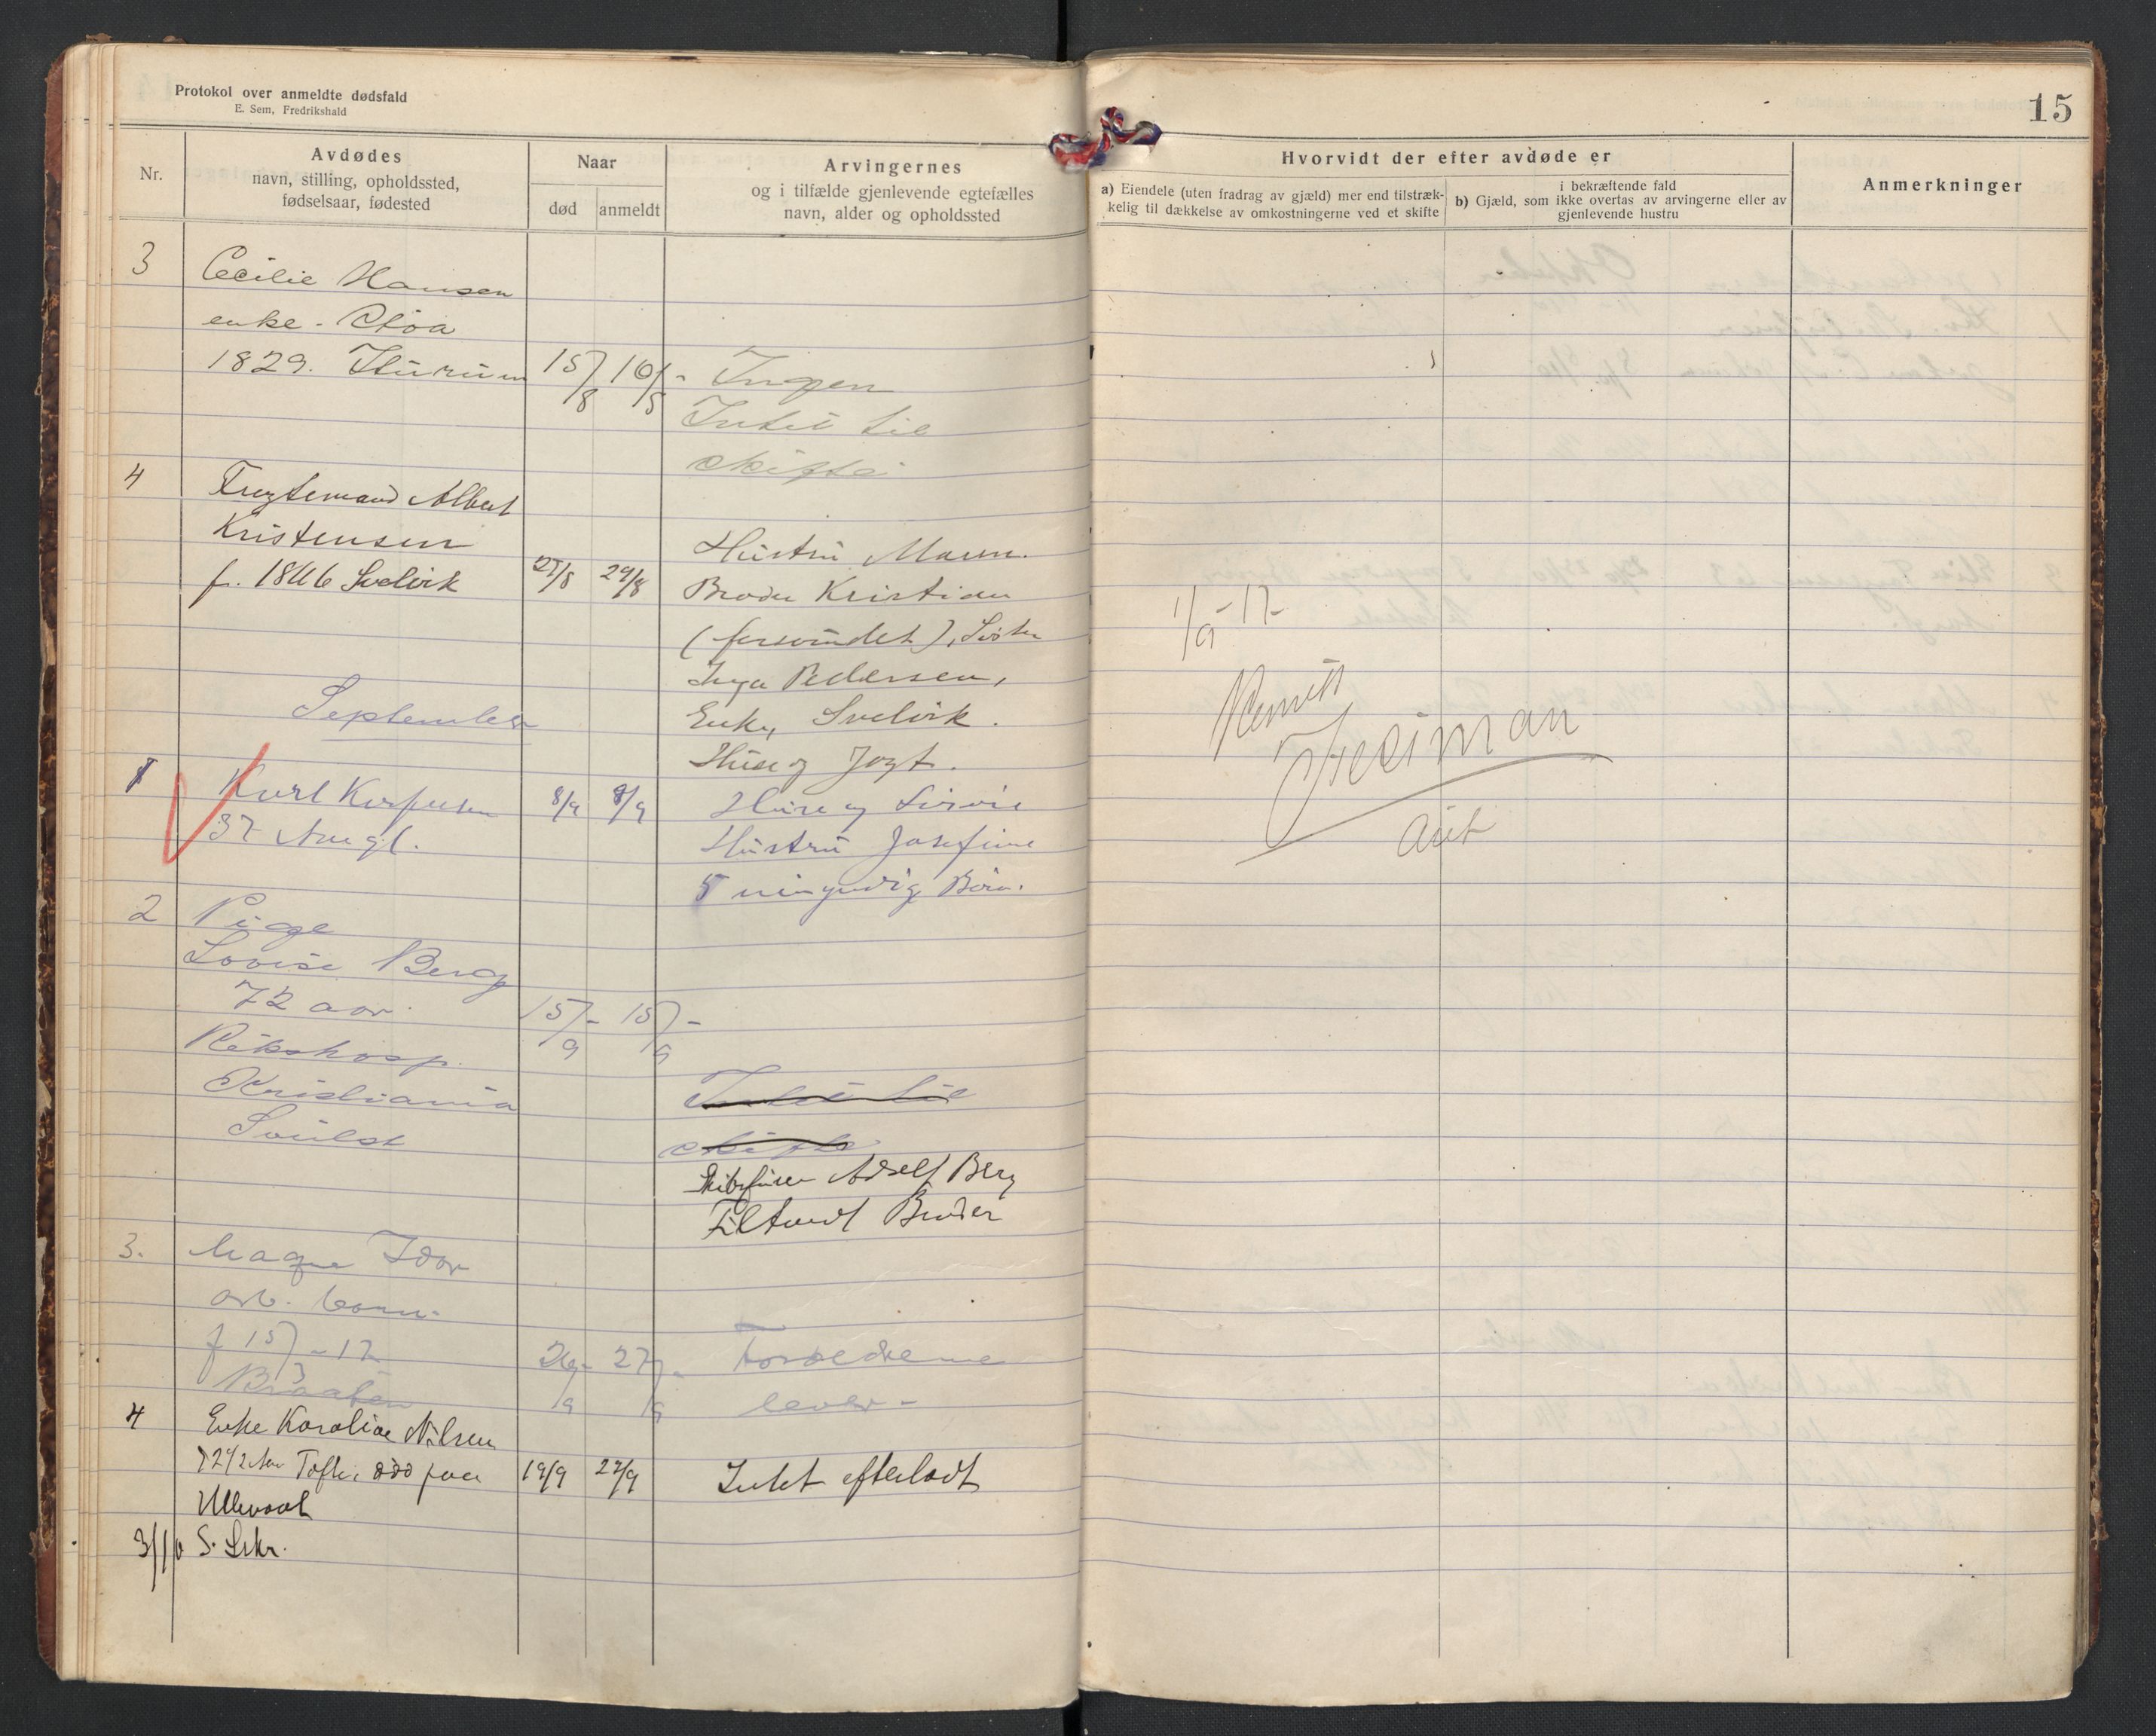 Protokol over anmeldte dødsfald
E. Sem, Fredrikshald
15
Nr.
Avdødes
navn, stilling, opholdssted,
fødselsaar, fødested
Naar
død
anmeldt
Arvingernes
og i tilfælde gjenlevende egtefælles
navn, alder og opholdssted
Hvorvidt der efter avdøde er
a) Eiendele (uten fradrag av gjæld) mer end tilstræk-
kelig til dækkelse av omkostningerne ved et skifte
i bekræftende fald
b) Gjæld, som ikke overtas av arvingerne eller av
gjenlevende hustru
Anmerkninger
3
Cecilie Hansen
enke - Støa
1829. Hurum 15/8 16/8 - Ingen
Intet til
skifte
4
Albert
Kristensen
f. 1846 Svelvik 29/8
Hustru Maren.
Broder Kristian
(forsvundet), Søster
Inga Pedersen,
Enke, Svelvik.
Hus og Jagt.
1/9-17-
September
1 Karl 8/9 8/9
37 Aar gl.
Hus og
Hustru Josefine
5 umyndig Børn.
2 Pige
Lovise Berg
72 aar.
15/9 - 15/9 -
Rikshosp.
Kristiania
Intet til
skifte
Skibsfører Adolf Berg
Filtvedt Broder
3. Magne Idar
arb. barn-
f 15/3 - 17
Braaten
26/9 - 27/9 -
Forældrene
lever -
4 Enke Karoline Nilsen
72 1/2 Aar Tofte, død paa
Ullevaal
19/9 27/9 Intet efterladt
3/10 S. Lkr.